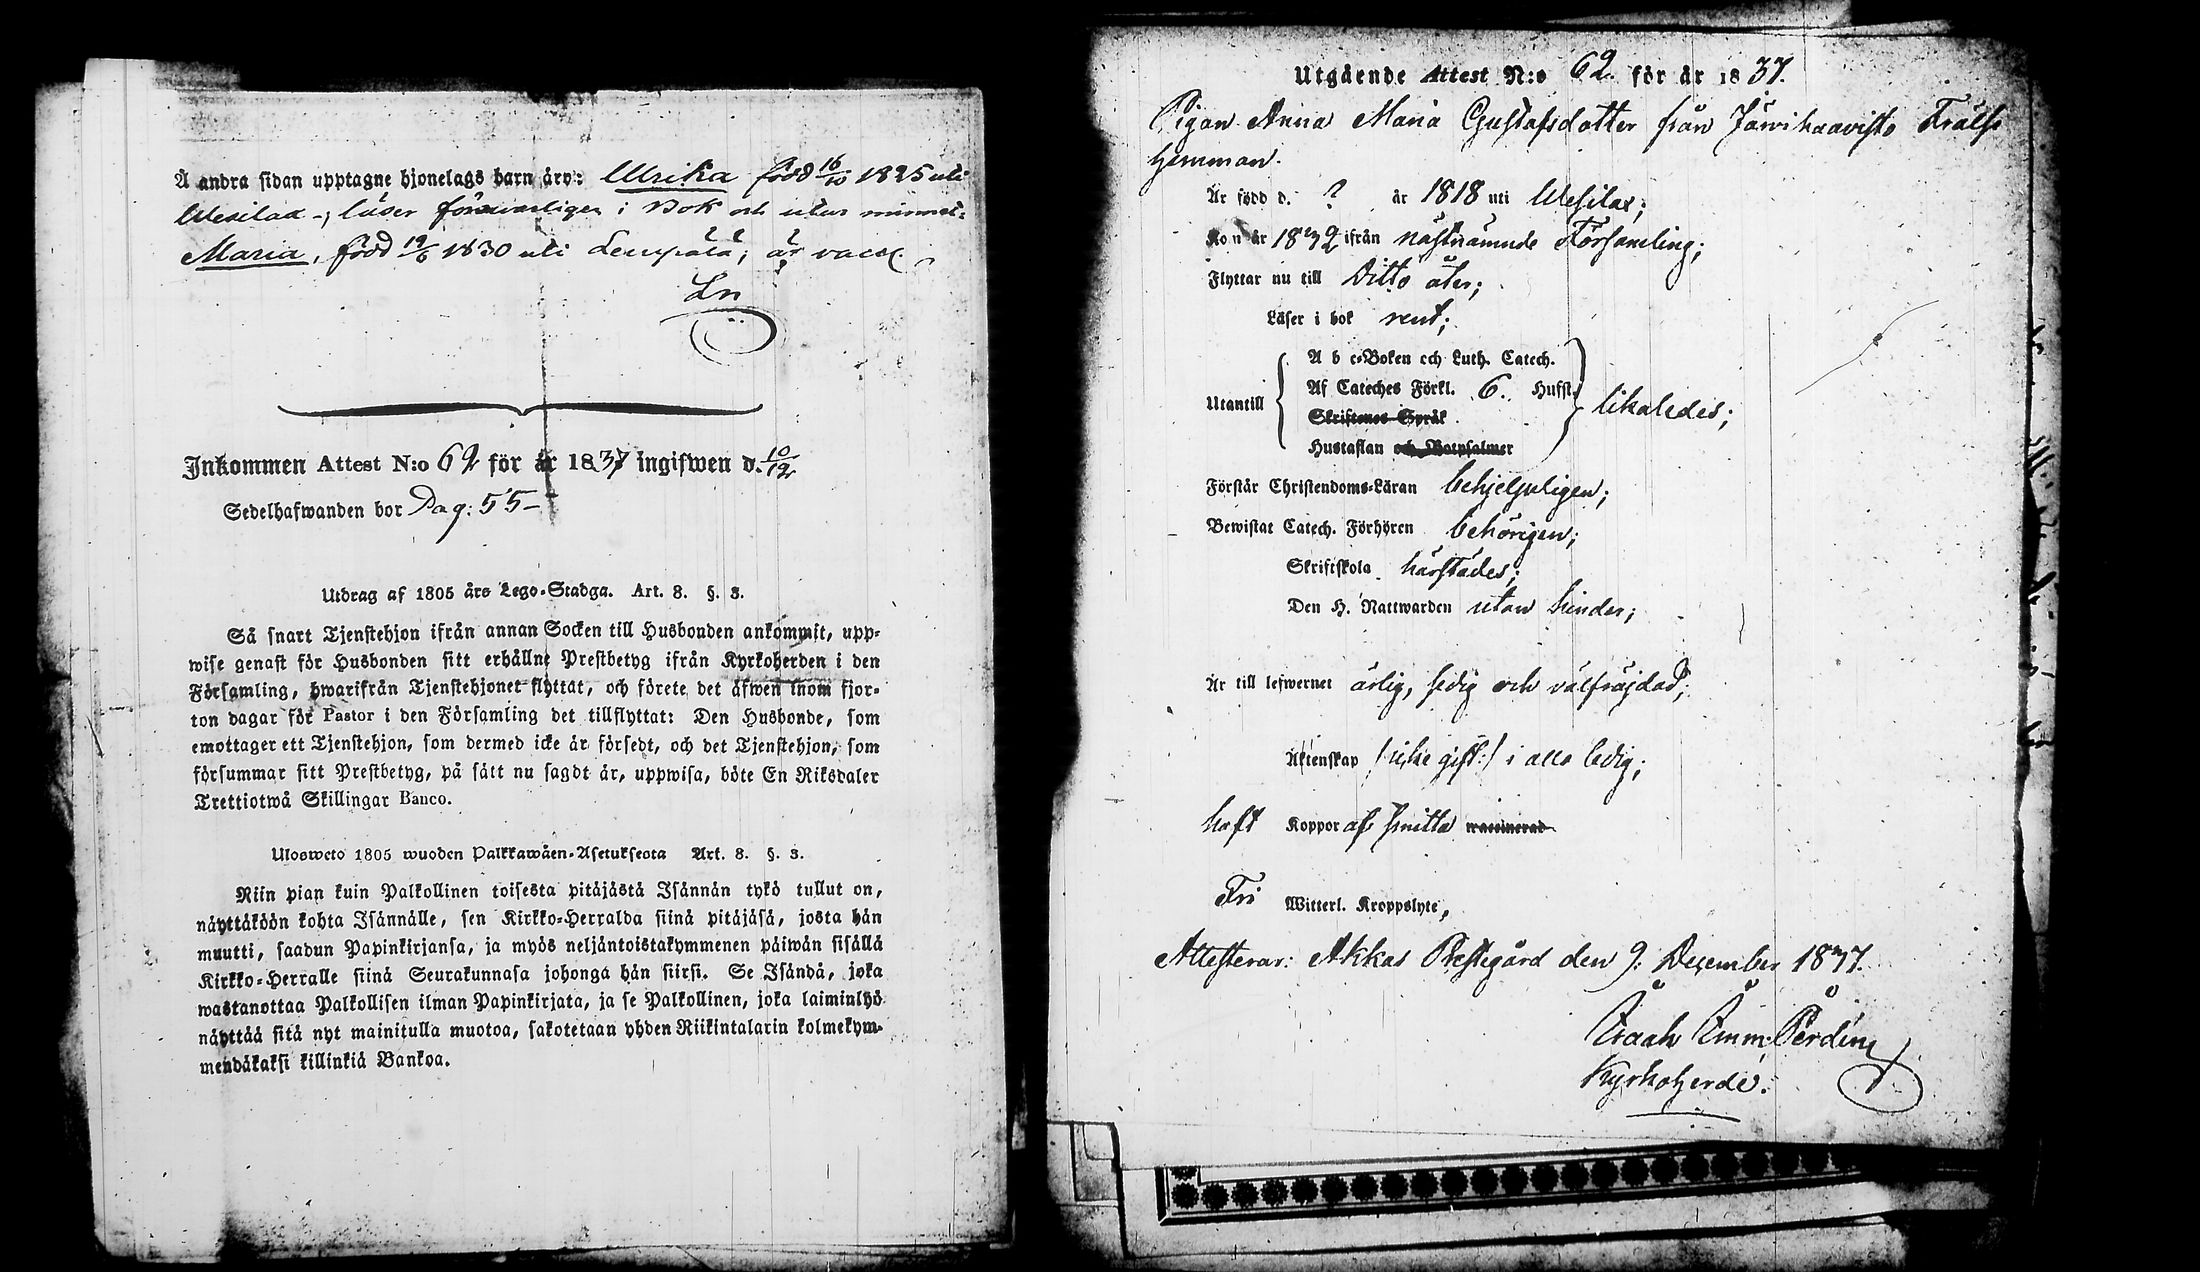 Å andra sidan upptagne hjonelags barn äro: Ulrika född 16/10 1825 uti
Wesilax -, läser försvarligen i Bok och utur minnet.
Maria, född 19/6 1830 uti Lempälä, är vacc.
Ln
Inkommen Attest N:o 62 för år 1837 ingifwen d. 10/12
Sedelhafwanden bor Pag: 55 –
Utdrag af 1805 års Lego-Stadga. Art. 8. §. 3.
Så snart Tjenstehjon ifrån annan Socken till Husbonden ankommit, upp-
wise genast för Husbonden sitt erhållne Prestbetyg ifrån Kyrkoherden i den
Församling, hwarifrån Tjenstehjonet flyttat, och förete det äfwen inom fjor-
ton dagar för Pastor i den Församling det tillflyttat: Den Husbonde, som
emottager ett Tjenstehjon, som dermed icke är försedt, och det Tjenstehjon, som
försummar sitt Prestbetyg, på sätt nu sagdt är, uppwisa, böte En Riksdaler
Trettiotwå Skillingar Banco.
Ulosweto 1805 wuoden Palkkawäen-Asetuksesta Art. 8. §. 3.
Niin pian kuin Palkollinen toisesta pitäjästä Isännän tykö tullut on,
näyttäköön kohta Isännälle, sen Kirkko-Herralda siinä pitäjäsä, josta hän
muutti, saadun Papinkirjansa, ja myös neljäntoistakymmenen päiwän sisällä
Kirkko-Herralle siinä Seurakunnasa johonga hän siirsi. Se Isändä, joka
wastanottaa Palkollisen ilman Papinkirjata, ja se Palkollinen, joka laiminlyö
näyttää sitä nyt mainitulla muotoa, sakotetaan yhden Riikintalarin kolmekym-
mendäkaksi killinkiä Bankoa.
Utgående Attest N:o 62. för år 1837.
Pigan Anna Maria Gustafsdotter från Järvihaavisto Frälse
hemman.
Är född d. ? år 1818 uti Wesilax;
Kom år 1832 ifrån nästnämnde Församling;
Flyttar nu till Ditto åter;
Läser i bok rent;
Utantill
A b c-Boken och Luth. Catech.
Af Cateches Förkl. 6. Hufst.
Skriftenes Språk
Hustaflan och Botpsalmer
likaledes;
Förstår Christendoms-Läran behjelpeligen;
Bewistat Catech. Förhören behörigen;
Skriftskola härstädes;
Den H. Nattwarden utan hinder;
Är till lefwernet ärlig, sedig och välfrejdad;
Äktenskap (icke gift:) i allo ledig;
haft Koppor af smitta waccinerad
Fri Witterl. Kroppslyte,
Attesterar: Akkas Prestegård den 9: December 1837.
Kyrkoherde.